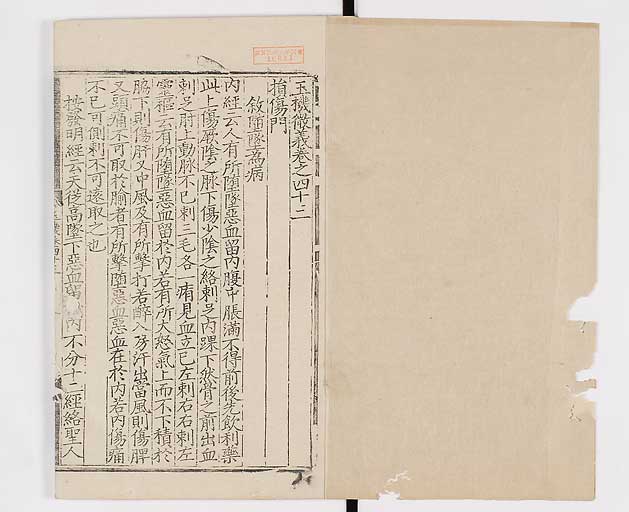 玉機微義卷之四十三
損傷門
敘墮墜爲病
內經云人有所墮墜惡血留內腹中脹滿不得前後先飲利藥
此上傷厥陰之脉下傷少陰之絡刺足內踝下然骨之前出血
刺足附上動脉不已刺三毛各一痏見血立已左刺右右刺左
靈樞云有所墮墜惡血留於內若有所大怒氣上而不下積於
脇下則傷肝又中風及有所擊打若醉入房汗出當風則傷脾
又頭痛不可取於腧者有所擊墮惡血在於內若內傷痛
不已可側刺不可遠取之也
按發明經云夫從高墜下惡血留 內不分十二經絡聖人